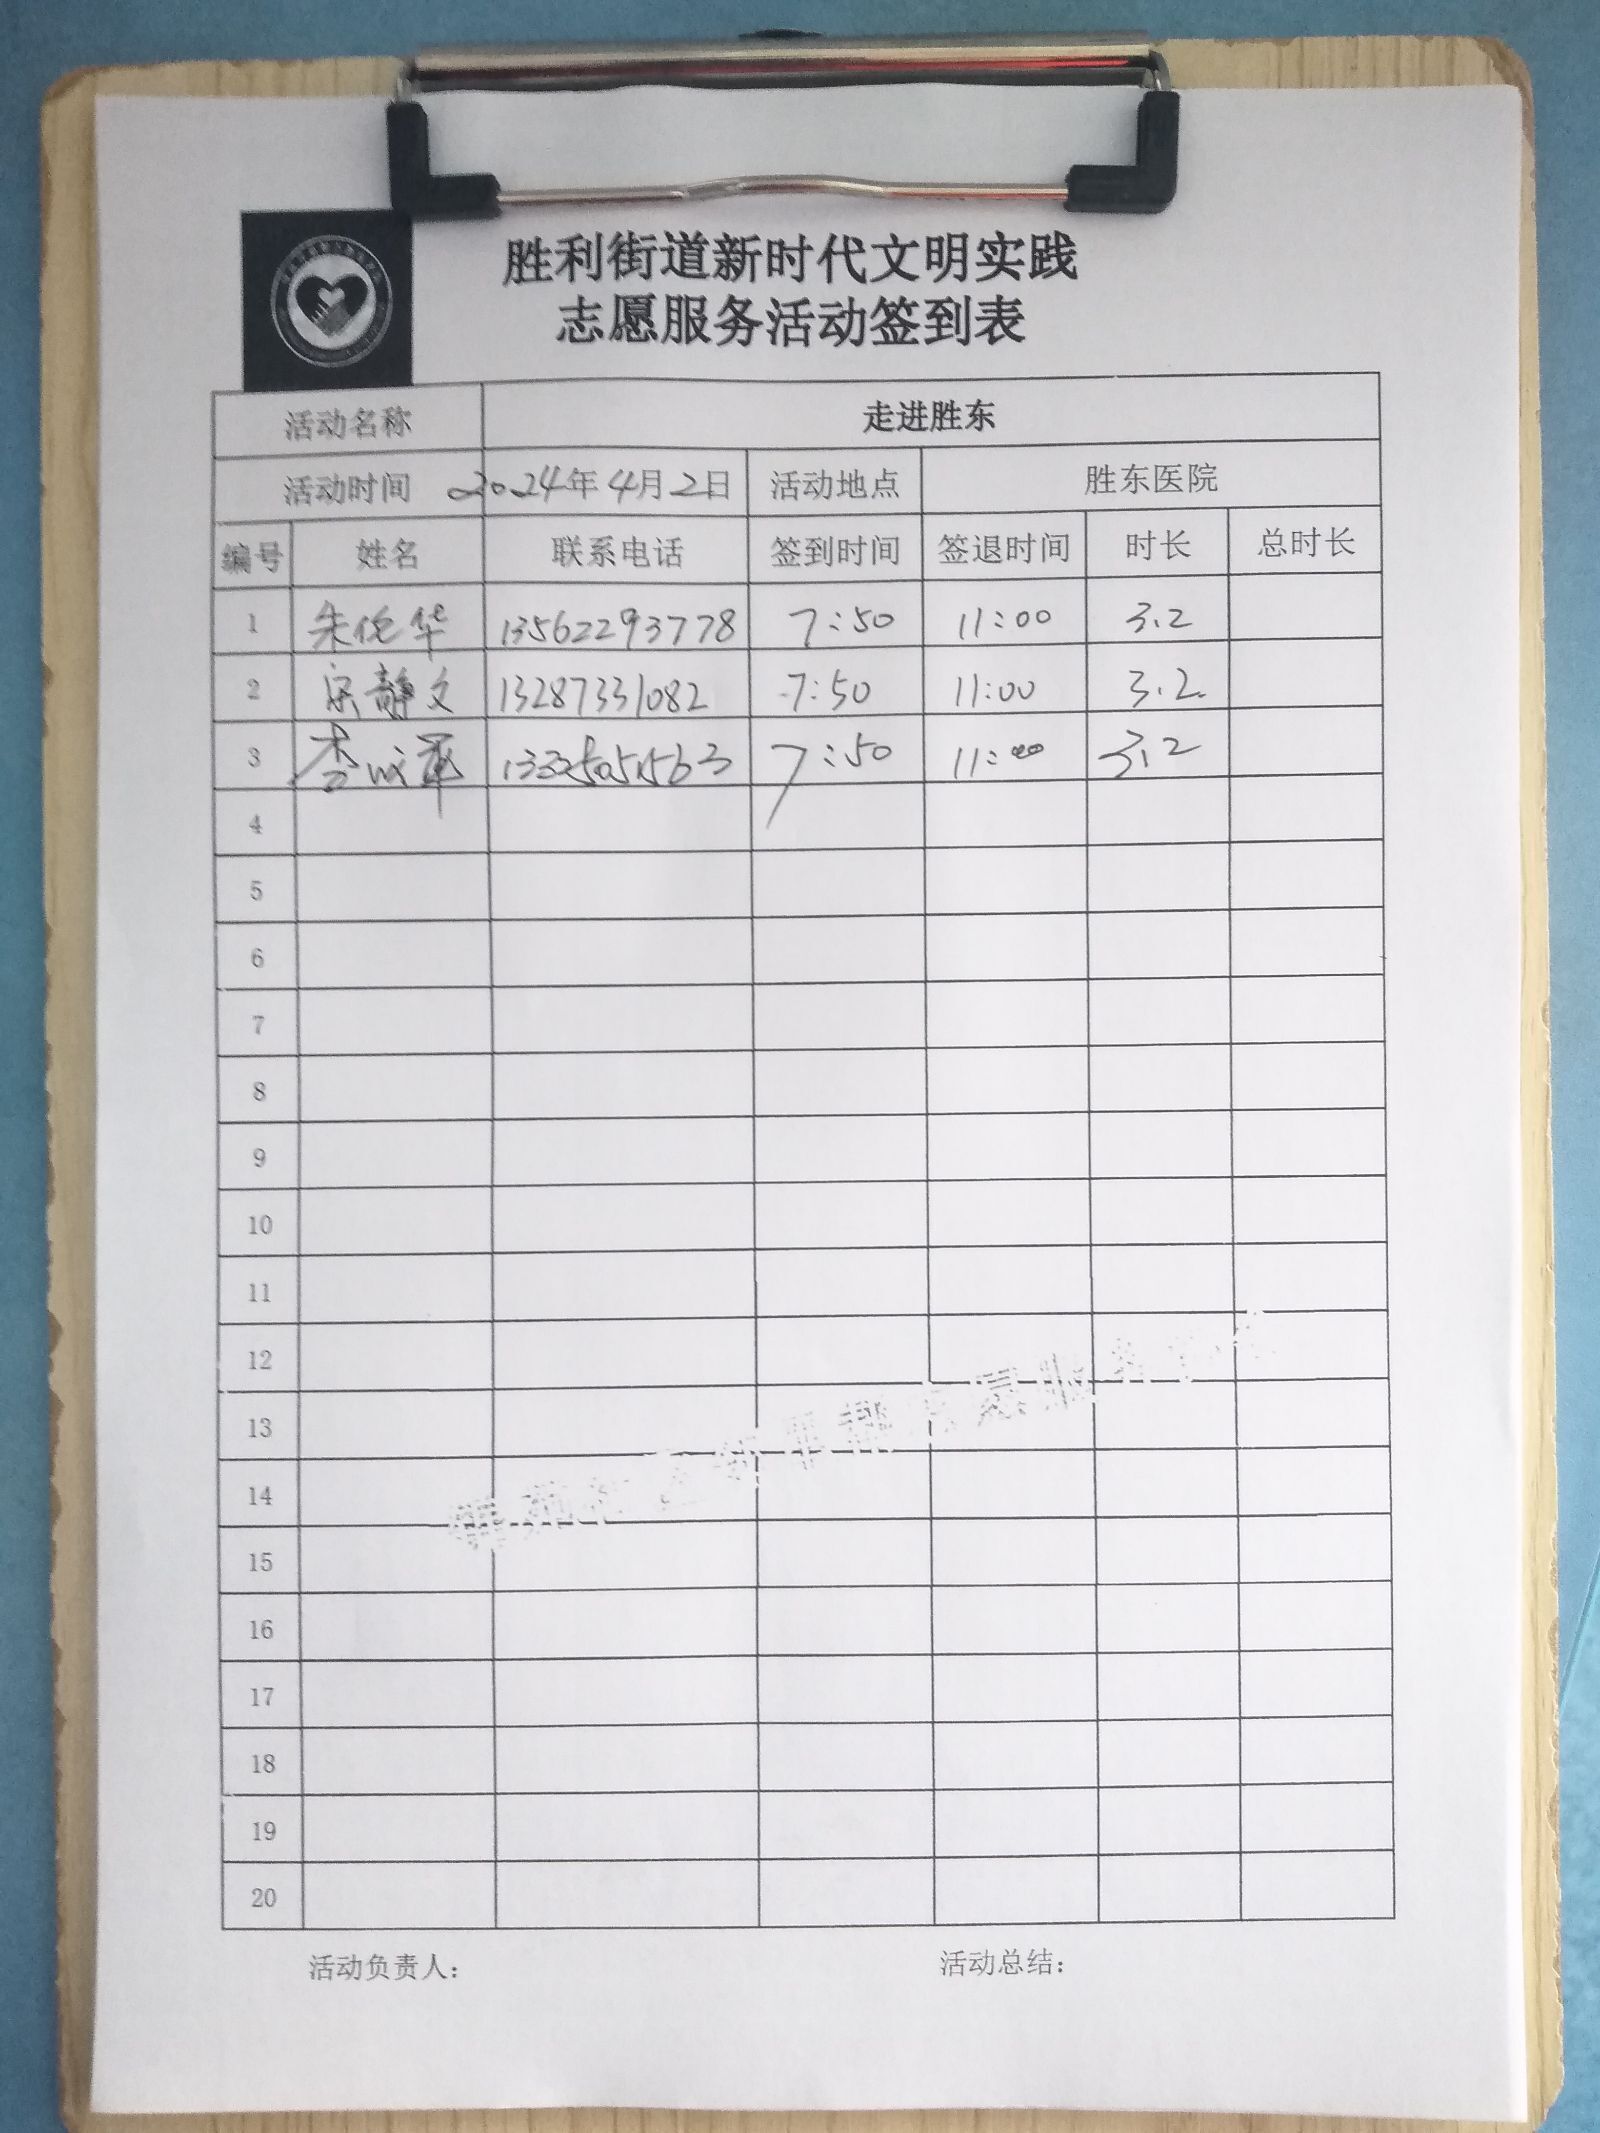 胜利街道新时代文明实践
志愿服务活动签到表
活动名称 走进胜东
活动时间 2024年4月2日 活动地点 胜东医院
编号 姓名 联系电话 签到时间 签退时间 时长 总时长
1 朱伦华 13562293778 7:50 11:00 3.2
2 宋静文 13287331082 7:50 11:00 3.2
3 7:50 11:00 3.2
4
5
6
7
8
9
10
11
12
13
14
15
16
17
18
19
20
活动负责人: 活动总结: